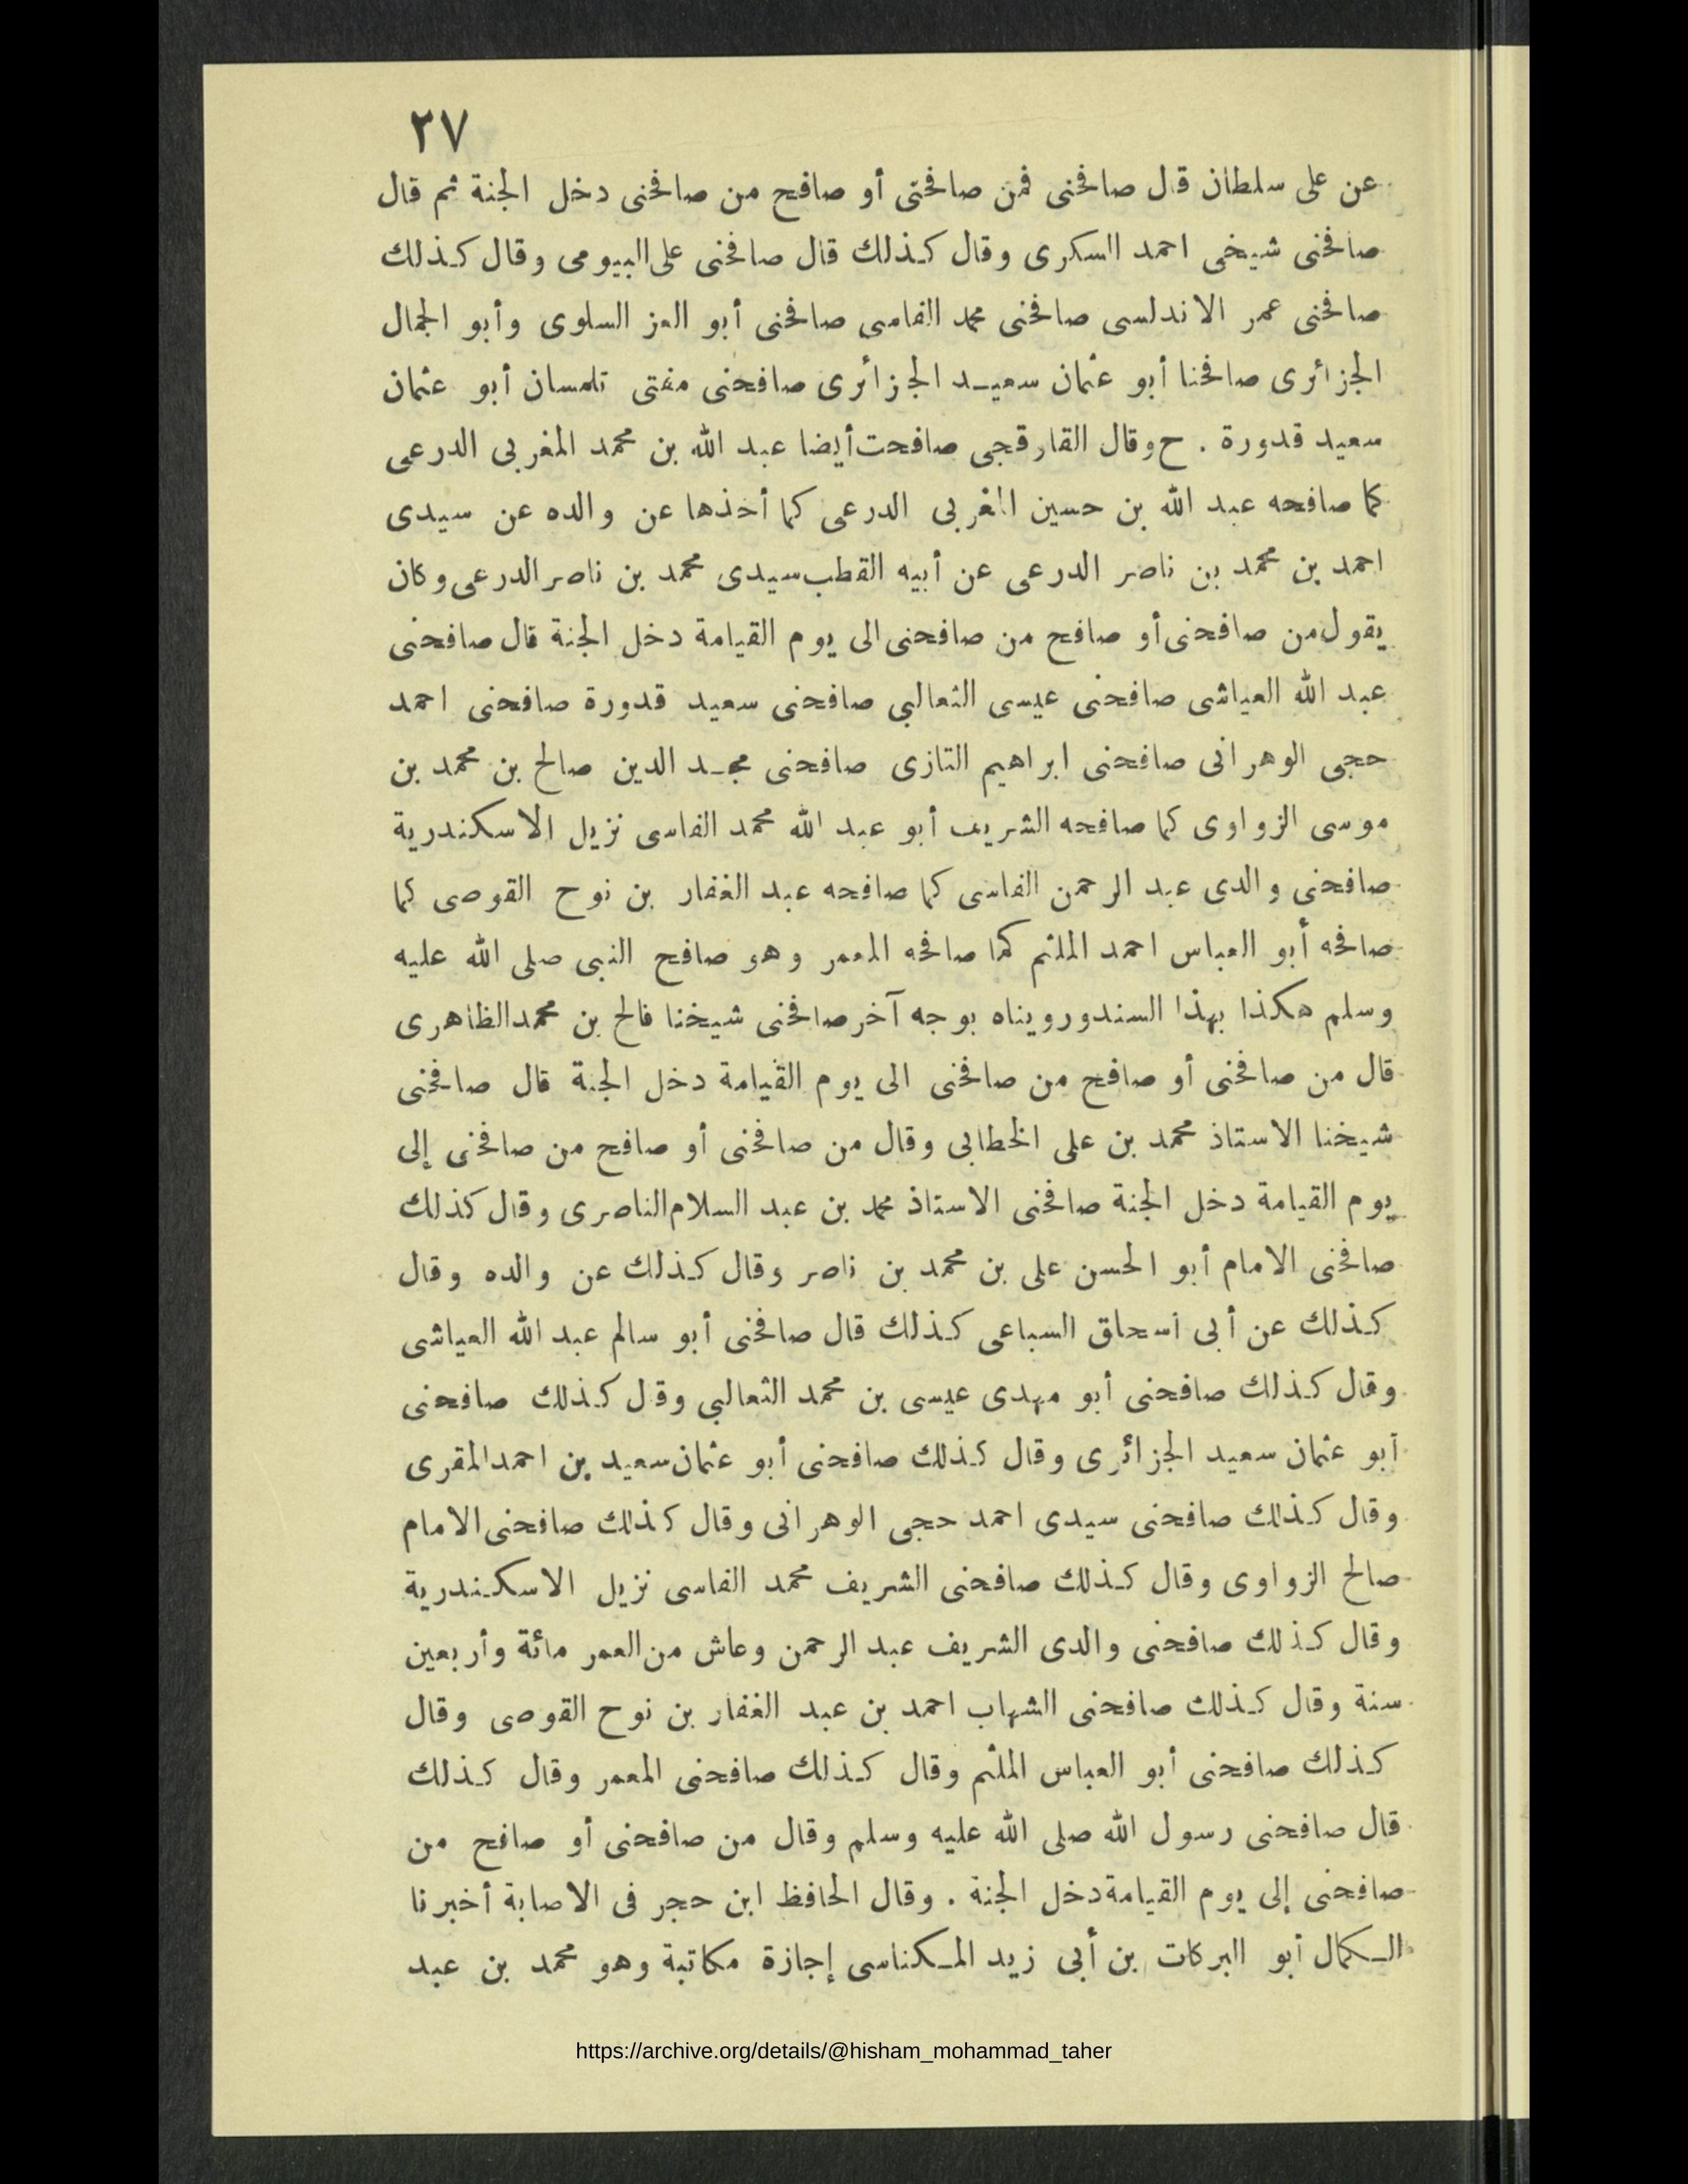 ٢٧
عن على سلطان قال صافحنى فمن صافحنى أو صافح من صافحنى دخل الجنة ثم قال
صافحنى شيخى احمد السكرى وقال كذلك قال صافحنى على البيومى وقال كذلك
صافحنى عمر الاندلسى صافحنى محمد الفاسى صافحنى أبو العز السلوى وأبو الجمال
الجزائرى صافحنا أبو عثمان سعيد الجزائرى صافحنى مفتى تلمسان أبو عثمان
سعيد قدورة . ح وقال القارقجى صافحت أيضا عبد الله بن محمد المغربى الدرعى
كما صافحه عبد الله بن حسين المغربى الدرعى كما أخذها عن والده عن سيدى
احمد بن محمد بن ناصر الدرعى عن أبيه القطب سيدى محمد بن ناصر الدرعى وكان
يقول من صافحنى أو صافح من صافحنى الى يوم القيامة دخل الجنة قال صافحنى
عبد الله العياشى صافحنى عيسى الثعالبى صافحنى سعيد قدورة صافحنى احمد
حجى الوهرانى صافحنى ابراهيم التازى صافحنى مجد الدين صالح بن محمد بن
موسى الزواوى كما صافحه الشريف أبو عبد الله محمد الفاسى نزيل الاسكندرية
صافحنى والدى عبد الرحمن الفاسى كما صافحه عبد الغفار بن نوح القوصى كما
صافحه أبو العباس احمد الملثم كما صافحه المعمر وهو صافح النبى صلى الله عليه
وسلم هكذا بهذا السند ورويناه بوجه آخر صافحنى شيخنا فالح بن محمد الظاهرى
قال من صافحنى أو صافح من صافحنى الى يوم القيامة دخل الجنة قال صافحنى
شيخنا الاستاذ محمد بن على الخطابى وقال من صافحنى أو صافح من صافحنى إلى
يوم القيامة دخل الجنة صافحنى الاستاذ محمد بن عبد السلام الناصرى وقال كذلك
صافحنى الامام أبو الحسن على بن محمد بن ناصر وقال كذلك عن والده وقال
كذلك عن أبى اسحاق السباعى كذلك قال صافحنى أبو سالم عبد الله العياشى
وقال كذلك صافحنى أبو مهدى عيسى بن محمد الثعالبى وقال كذلك صافحنى
أبو عثمان سعيد الجزائرى وقال كذلك صافحنى أبو عثمان سعيد بن احمد المقرى
وقال كذلك صافحنى سيدى احمد حجى الوهرانى وقال كذلك صافحنى الامام
صالح الزواوى وقال كذلك صافحنى الشريف محمد الفاسى نزيل الاسكندرية
وقال كذلك صافحنى والدى الشريف عبد الرحمن وعاش من العمر مائة وأربعين
سنة وقال كذلك صافحنى الشهاب احمد بن عبد الغفار بن نوح القوصى وقال
كذلك صافحنى أبو العباس الملثم وقال كذلك صافحنى المعمر وقال كذلك
قال صافحنى رسول الله صلى الله عليه وسلم وقال من صافحنى أو صافح من
صافحنى إلى يوم القيامة دخل الجنة . وقال الحافظ ابن حجر فى الاصابة أخبرنا
الكمال أبو البركات بن أبى زيد المكناسى إجازة مكاتبة وهو محمد بن عبد
https://archive.org/details/@hisham_mohammad_taher